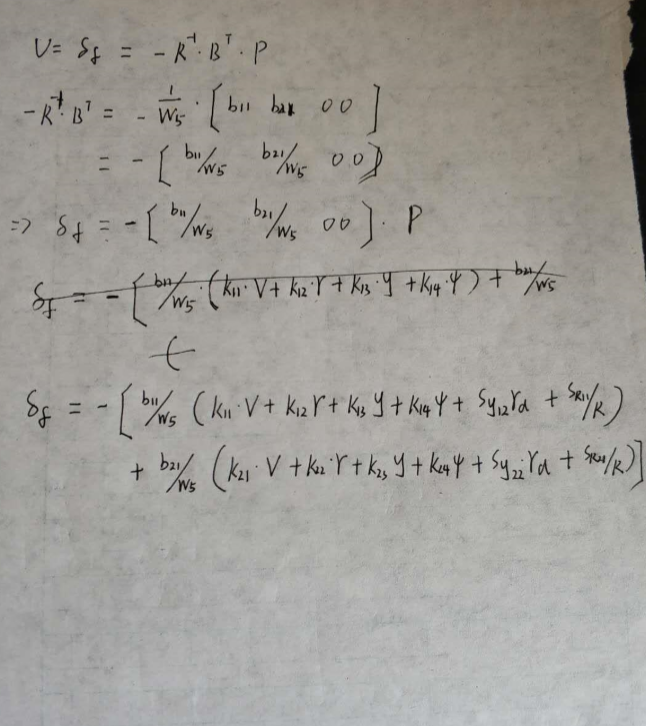 U = δf = - R⁻¹ · Bᵀ · P
- R⁻¹ · Bᵀ = - 1/W5 · [ b11 b21 0 0 ]
= - [ b11/W5 b21/W5 0 0 ]
=> δf = - [ b11/W5 b21/W5 0 0 ] · P
δf = - [ b11/W5 · ( k11 · V + k12 · r + k13 · y + k14 · ψ ) + b21/W5
δf = - [ b11/W5 ( k11 · V + k12 r + k13 y + k14 ψ + Sy12 rd + SR11/R )
+ b21/W5 ( k21 · V + k22 · r + k23 y + k24 ψ + Sy22 · rd + SR21/R ) ]